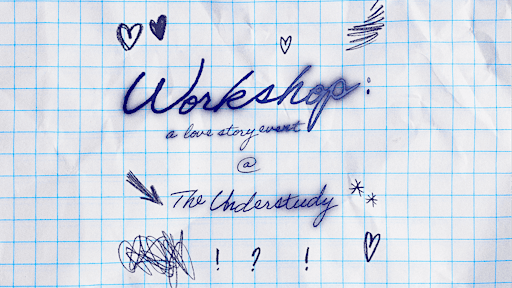 Workshop:
a love story event
@
The Understudy
! ? !